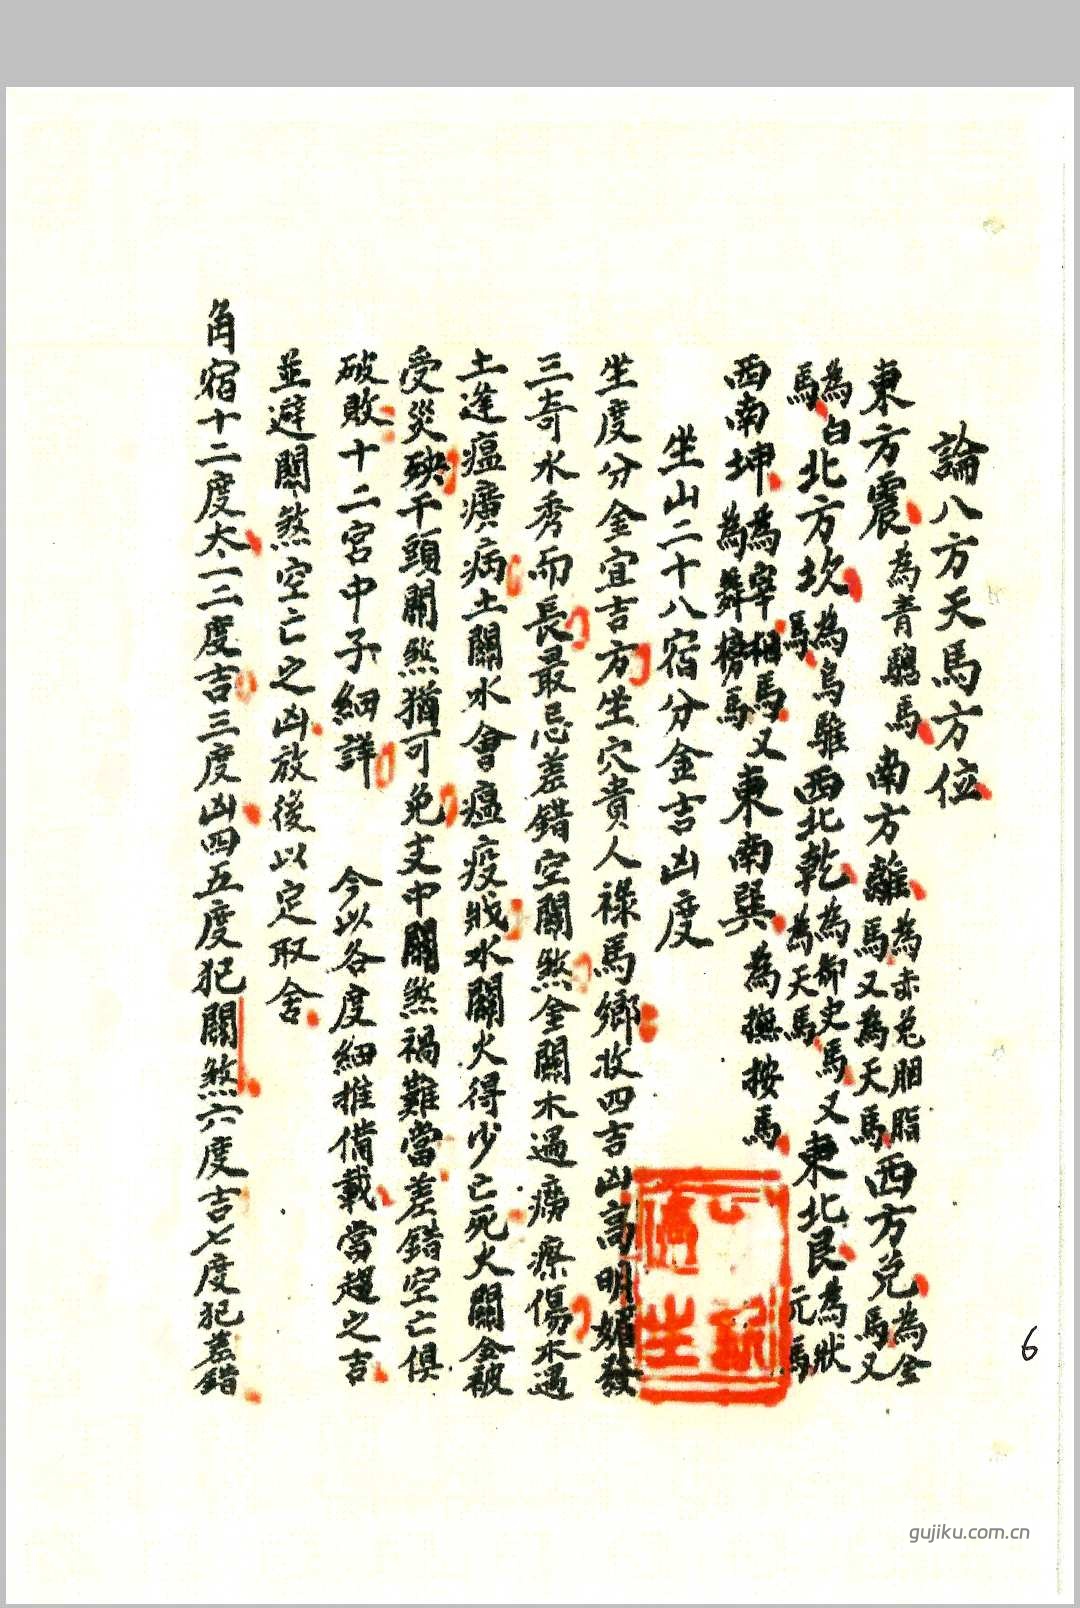 論八方天馬方位
東方震為青驄馬南方離為赤兔胭脂馬又為天馬西方兌為金馬又
為白馬北方坎為烏騅馬西北乾為御史馬為天馬又東北艮為狀元馬
西南坤為宰相馬為舞榜馬又東南巽為撫按馬
坐山二十八宿分金吉凶度
坐度分金宜吉方坐穴貴人祿馬鄉收四吉凶高明媚發
三奇水秀而長最忌差錯空關煞金關木過癆瘵傷木過
土逢瘟癀病土關水會瘟疫戕水關火得少亡死火關金被
受災殃干頭關煞猶可免支中關煞禍難當差錯空亡俱
破敗十二宮中子細詳 今以各度細推備載當趨之吉
並避關煞空亡之凶放後以定取舍
角宿十二度太一二度吉三度凶四五度犯關煞六度吉七度犯差錯
6
gujiku.com.cn